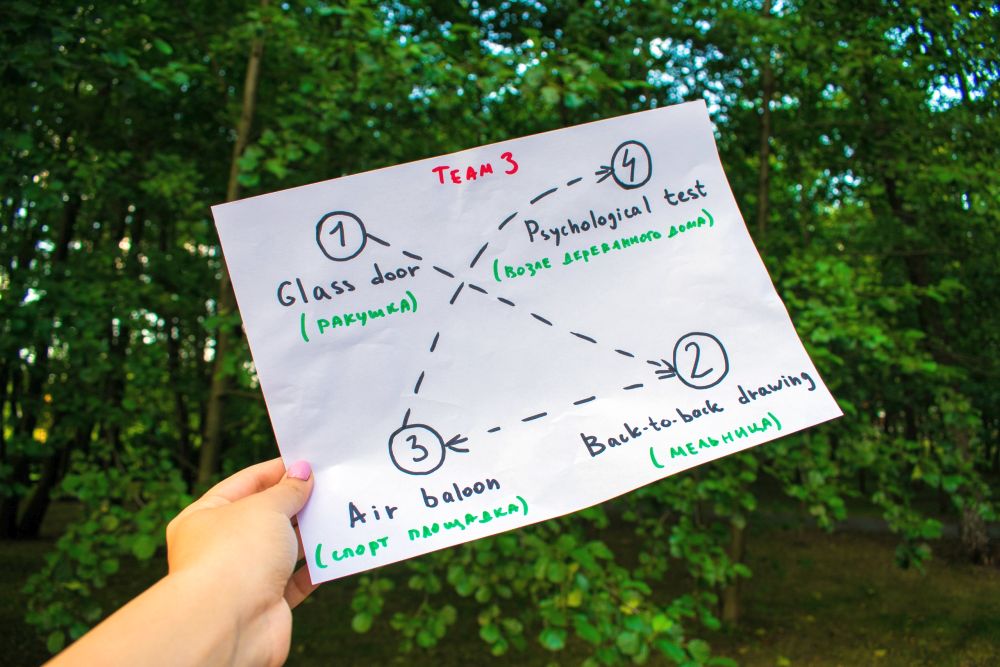 TEAM 3
1
Glass door
(РАКУШКА)
4
Psychological test
(ВОЗЛЕ ДЕРЕВЯННОГО ДОМА)
2
Back-to-back drawing
(МЕЛЬНИЦА)
3
Air baloon
(СПОРТ ПЛОЩАДКА)